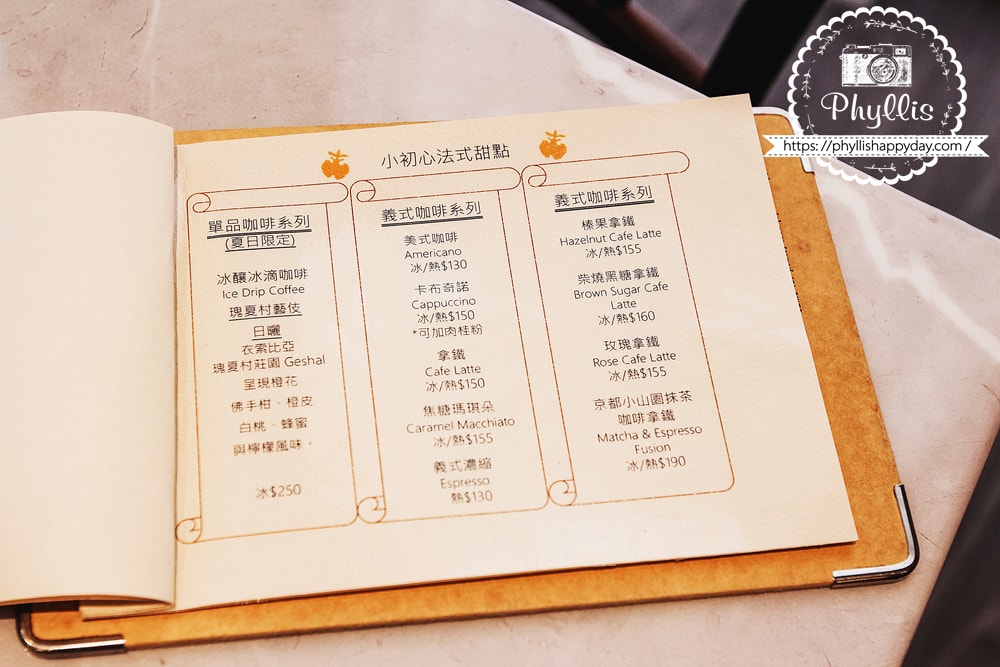 小初心法式甜點
單品咖啡系列
(夏日限定)
冰釀冰滴咖啡
Ice Drip Coffee
瑰夏村藝伎
日曬
衣索比亞
瑰夏村莊園 Geshal
呈現橙花
佛手柑、橙皮
白桃、蜂蜜
與檸檬風味。
冰$250
義式咖啡系列
美式咖啡
Americano
冰/熱$130
卡布奇諾
Cappuccino
冰/熱$150
*可加肉桂粉
拿鐵
Cafe Latte
冰/熱$150
焦糖瑪琪朵
Caramel Macchiato
冰/熱$155
義式濃縮
Espresso
熱$130
義式咖啡系列
榛果拿鐵
Hazelnut Cafe Latte
冰/熱$155
柴燒黑糖拿鐵
Brown Sugar Cafe
Latte
冰/熱$160
玫瑰拿鐵
Rose Cafe Latte
冰/熱$155
京都小山園抹茶
咖啡拿鐵
Matcha & Espresso
Fusion
冰/熱$190
Phyllis
https://phyllishappyday.com/